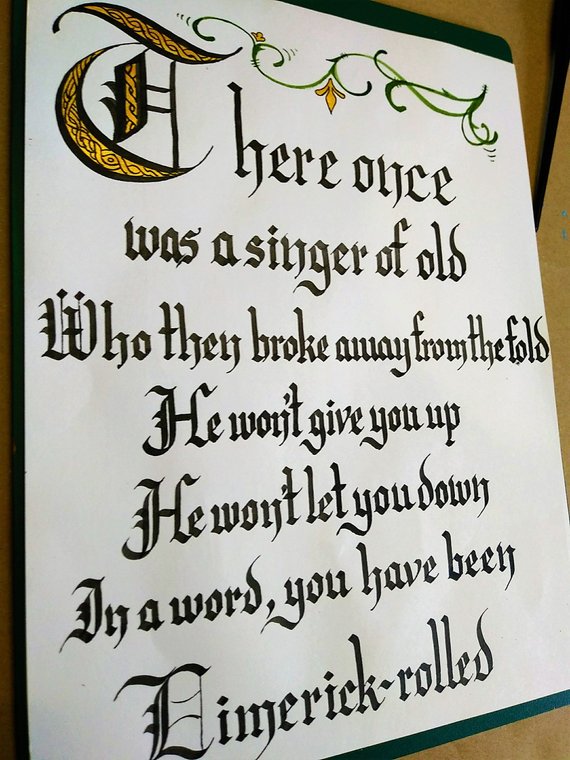 There once
was a singer of old
Who then broke away from the fold
He won't give you up
He won't let you down
In a word, you have been
Limerick-rolled